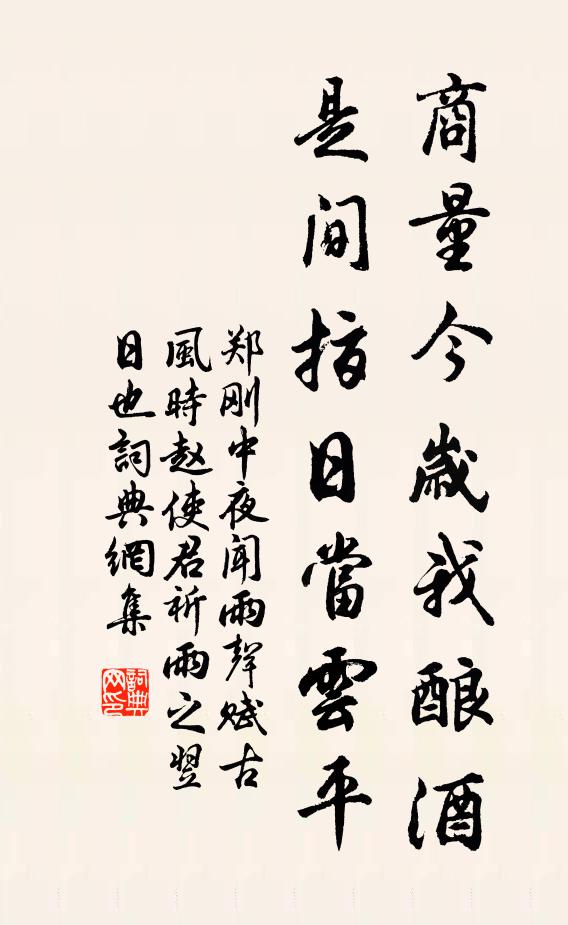 商量今歲我酿酒
是间指日當雲平
郑刚中夜闻雨聲赋古
風時赵使君祈雨之翌
日也詞典網集
詞典网印